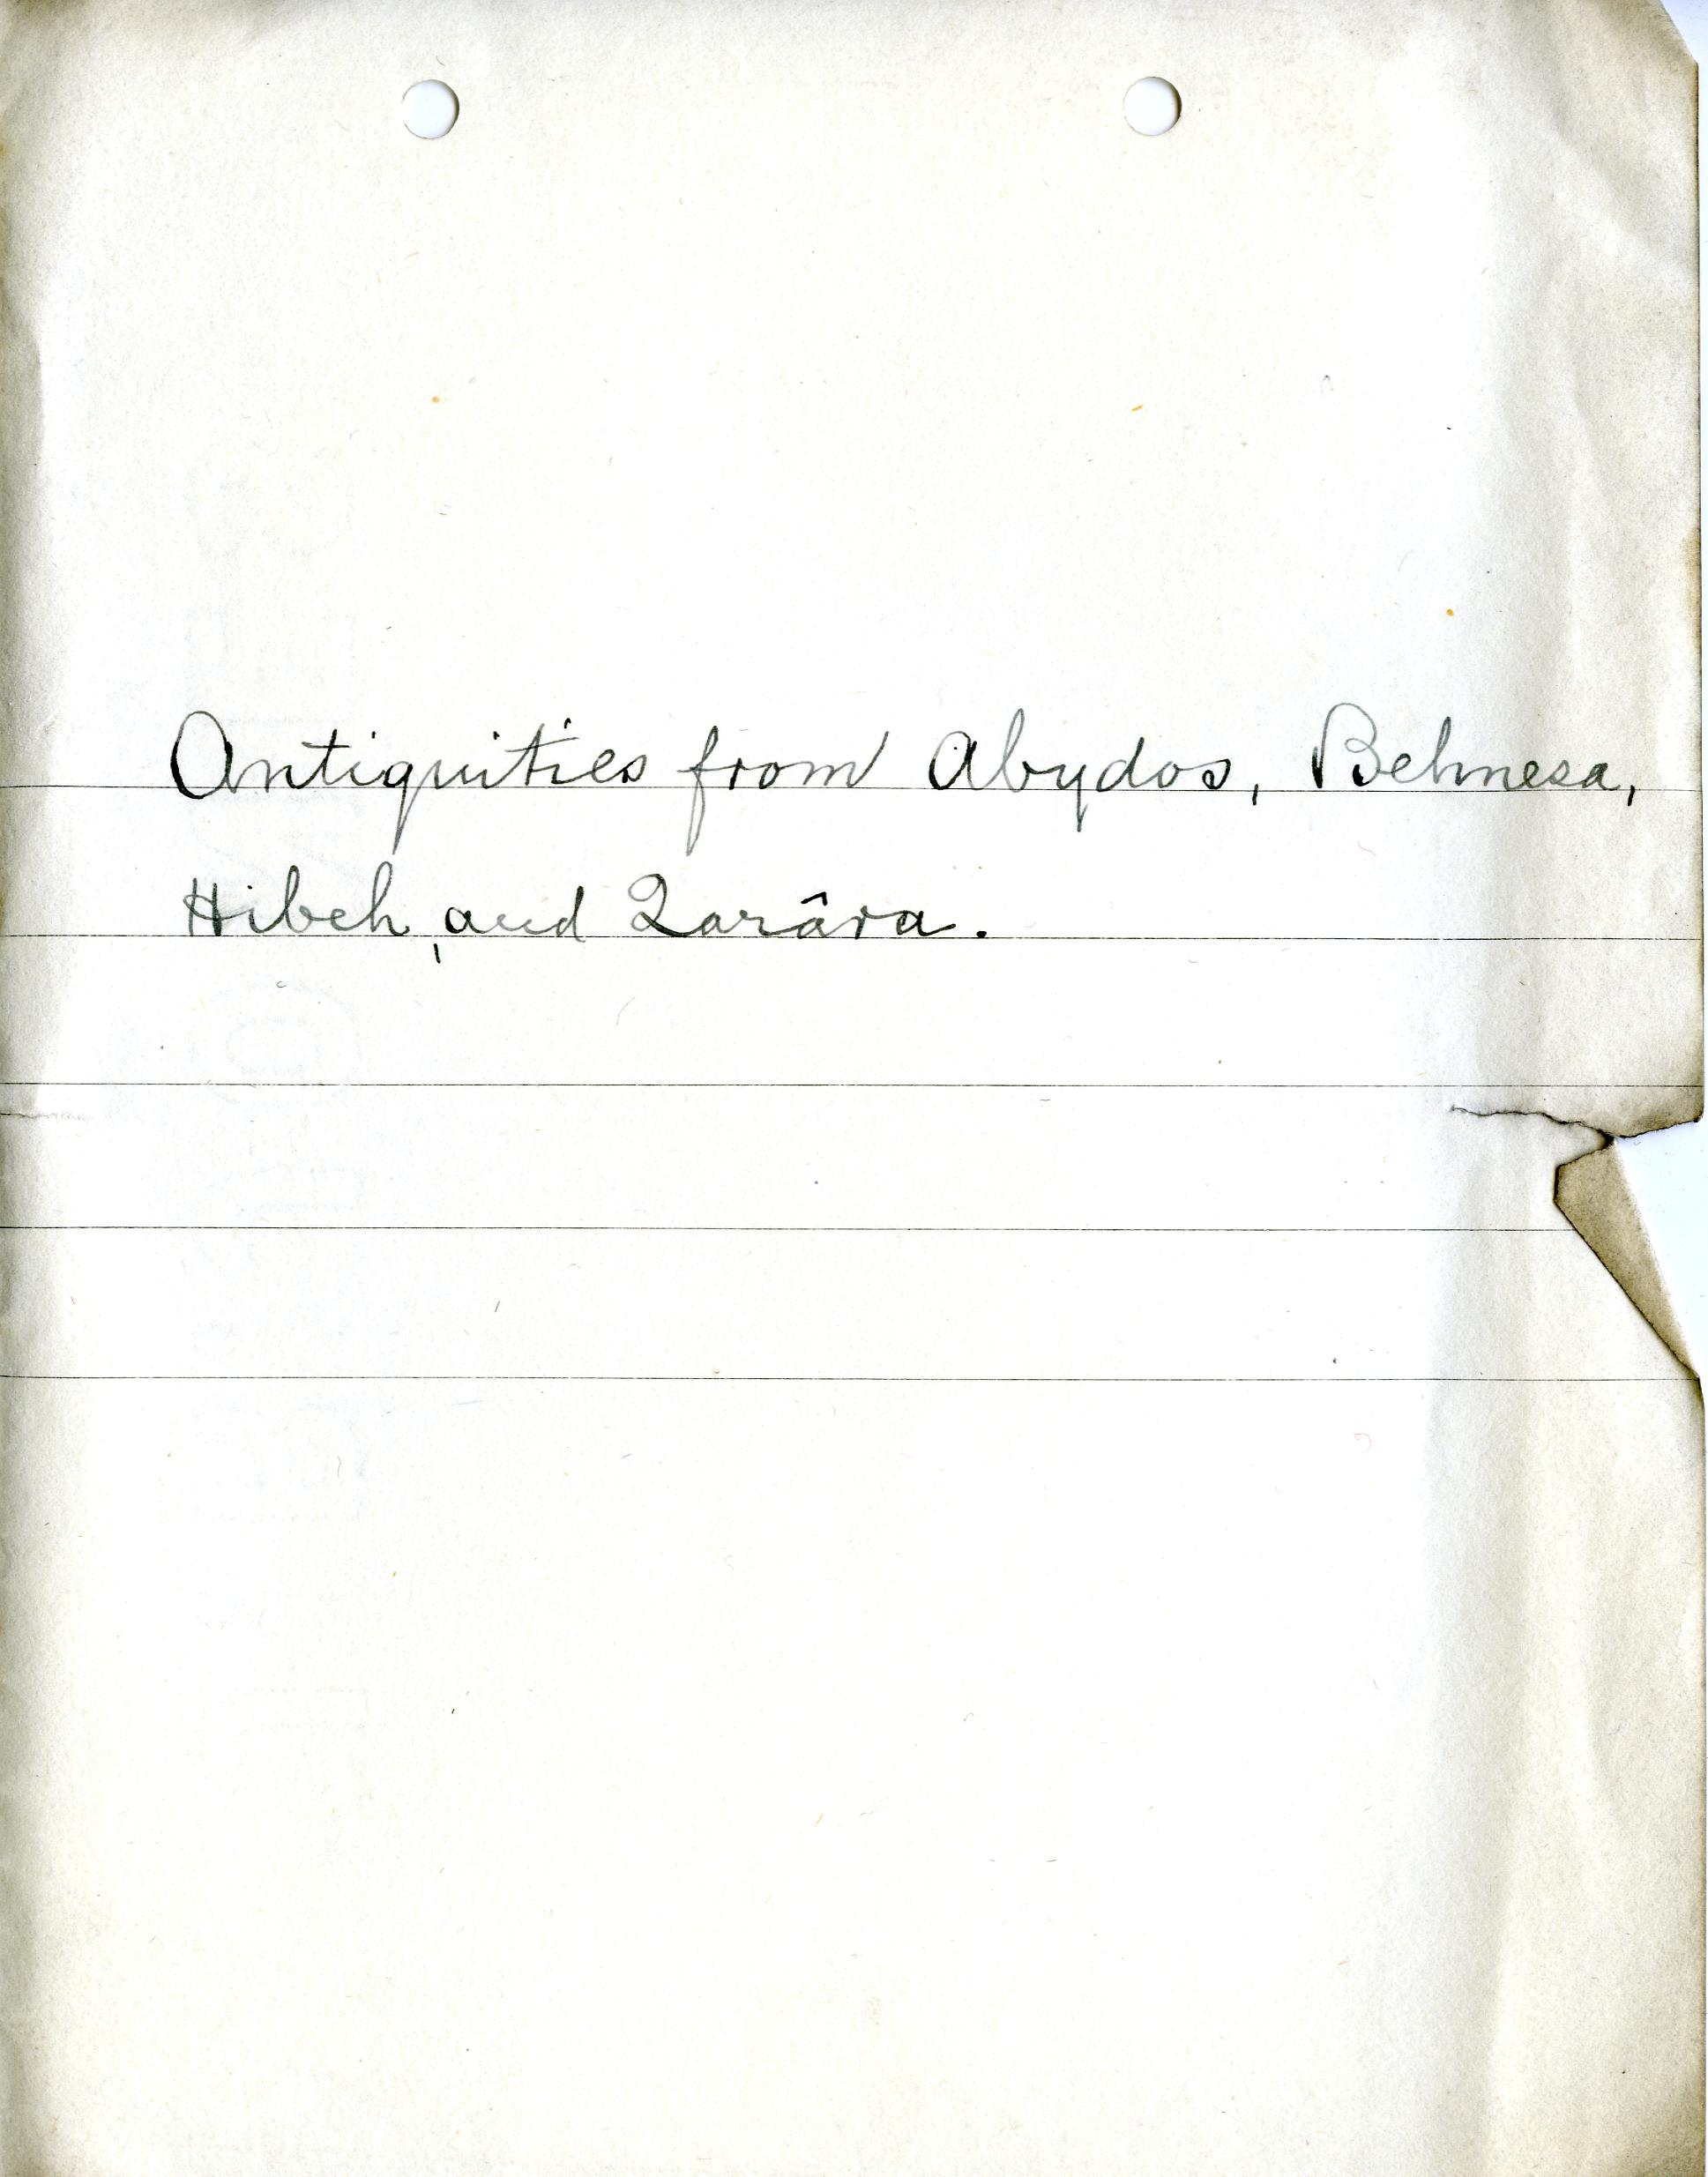 Antiquities from Abydos, Behnesa,
Hibeh, and Qarâra.